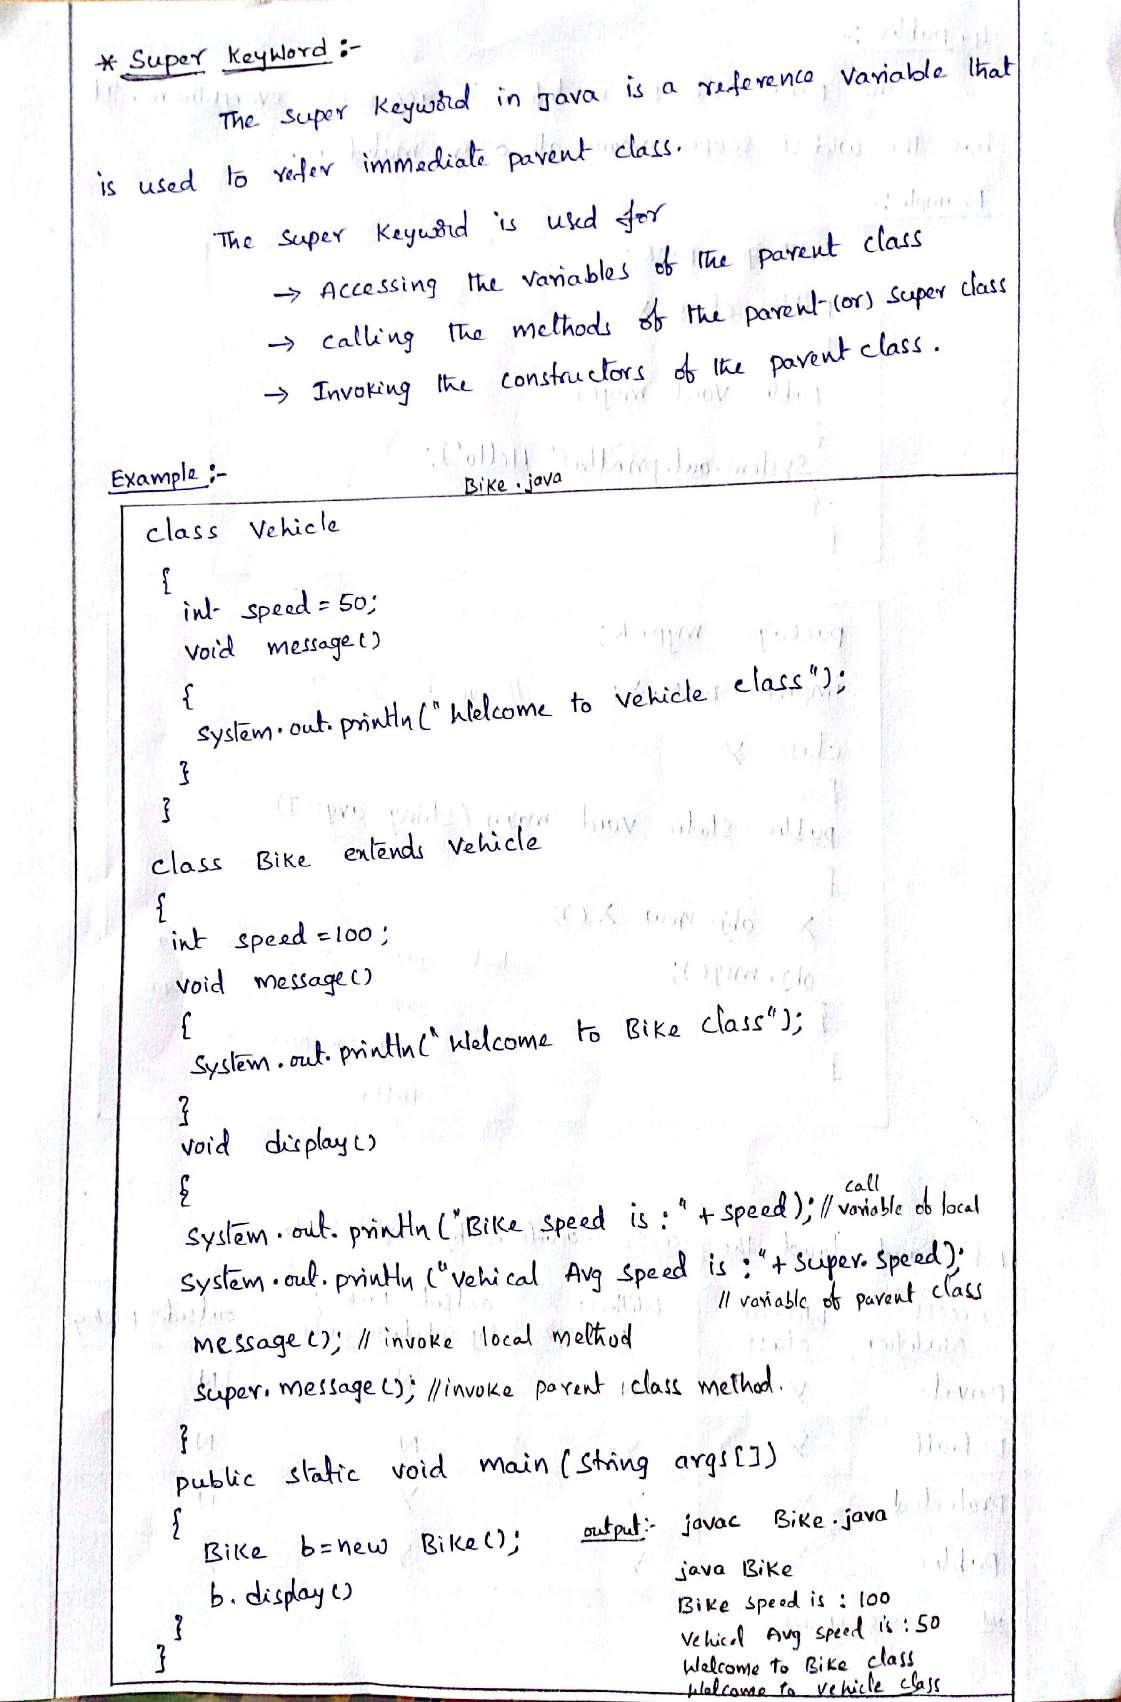 * Super Keyword :-
The super Keyword in Java is a reference variable that
is used to refer immediate parent class.
The super Keyword is used for
→ Accessing the variables of the parent class
→ calling the methods of the parent (or) super class
→ Invoking the constructors of the parent class.
Example :-
Bike.java
class Vehicle
{
int speed = 50;
void message()
{
System.out.println("Welcome to vehicle class");
}
}
class Bike extends Vehicle
{
int speed =100;
void message()
{
System.out.println("Welcome to Bike class");
}
void display()
{
call
System.out.println("Bike speed is :" + speed); // variable of local
System.out.println("vehical Avg speed is :" + super.speed);
// variable of parent class
message(); // invoke local method
super.message(); //invoke parent class method.
}
public static void main (String args[])
{
Bike b=new Bike();
b.display()
}
}
output:- javac Bike.java
java Bike
Bike speed is : 100
Vehical Avg speed is : 50
Welcome to Bike class
Welcome to vehicle class